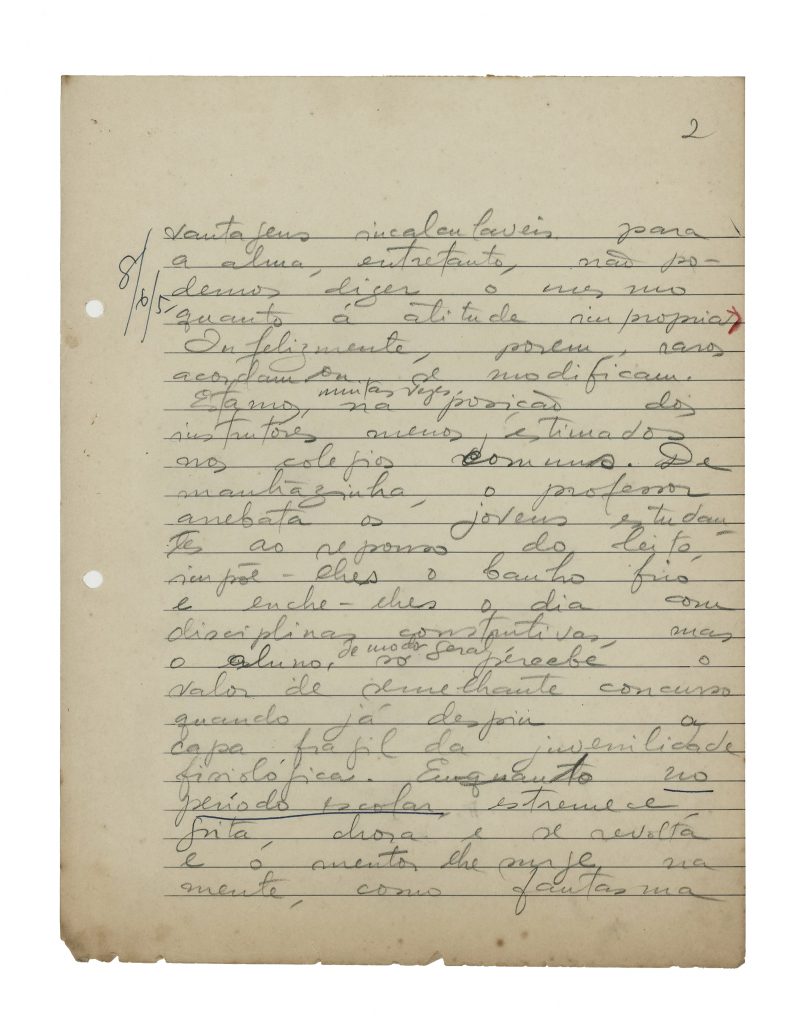 2
8/6/51
vantagens incalculaveis para
a alma, entretanto, não po-
demos dizer o mesmo
quanto á atitude impropria
Infelizmente, porem, raros
acordam ou se modificam.
Estamos, muitas vezes, na posição dos
instrutores menos estimados
nos colegios comuns. De
manhãzinha, o professor
arrebata os jovens estudan-
tes ao repouso do leito,
impõe-lhes o banho frio
e enche-lhes o dia com
disciplinas construtivas, mas
o aluno, de modo geral, só percebe o
valor de semelhante concurso
quando já despiu a
capa fragil da juvenilidade
fisiológica. Enquanto no
período escolar, estremece,
grita, chora e se revolta
e o mentor lhe surge, na
mente, como fantasma